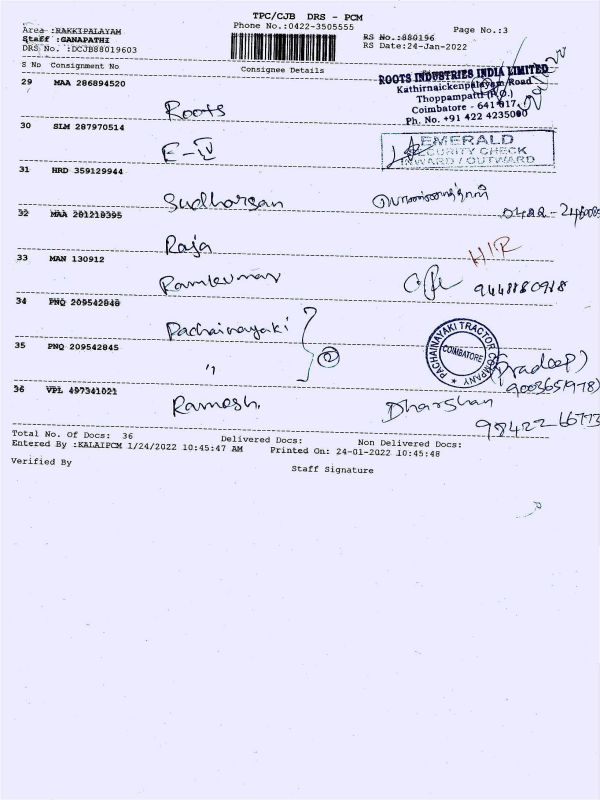 TPC/CJB DRS - PCM
Phone No.:0422-3505555
Page No.:3
Area :RAKKIPALAYAM
Staff :GANAPATHI
DRS No. :DCJB88019603
RS No.:880196
RS Date:24-Jan-2022
S No Consignment No Consignee Details
ROOTS INDUSTRIES INDIA LIMITED
Kathirnaickenpalayam Road
Thoppampatti (P.O.)
Coimbatore - 641 017
Ph. No. +91 422 4235000
29 MAA 286894520
Roots
30 SLM 287970514
E-IV
EMERALD
SECURITY CHECK
INWARD / OUTWARD
31 HRD 359129944
Sudharsan
32 MAA 281218395
Raja
H/R
33 MAN 130912
Ramkumar
34 PNQ 209542848
Pachainayaki
2
35 PNQ 209542845
"
PACHAINAYAKI TRACTOR COMPANY
COIMBATORE
(Pradeep)
36 VPL 497341021
Ramesh.
Dharshan
Total No. Of Docs: 36 Delivered Docs: Non Delivered Docs:
Entered By :KALAIPCM 1/24/2022 10:45:47 AM Printed On: 24-01-2022 10:45:48
Verified By
Staff Signature